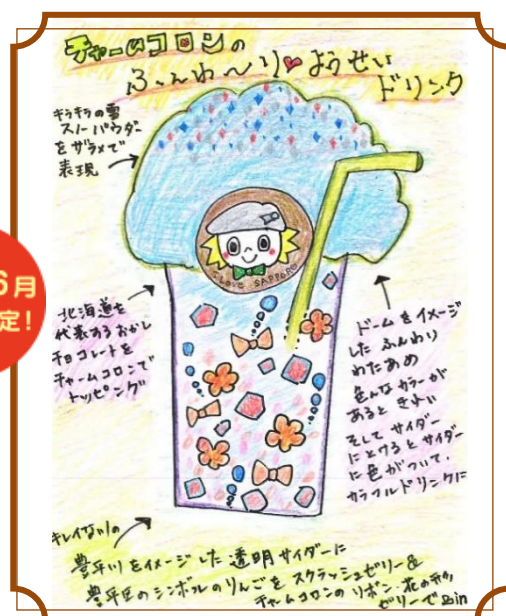 チャームコロンの
ふんわ〜り♥ようせい
ドリンク
キラキラの雪
スノーパウダー
をザラメで
表現
6月
定!
I Love SAPPORO
北海道を
代表するおかし
チョコレートを
チャームコロンで
トッピング
ドームをイメージ
した ふんわり
わたあめ
色んなカラーが
あると きれい
そして サイダー
にとけるとサイダー
に色がついて、
カラフルドリンクに
キレイな川の
豊平川をイメージした 透明サイダーに
豊平区のシンボルのりんごを スクラッシュゼリー&
チャームコロンの リボン・花の
ゼリーで in